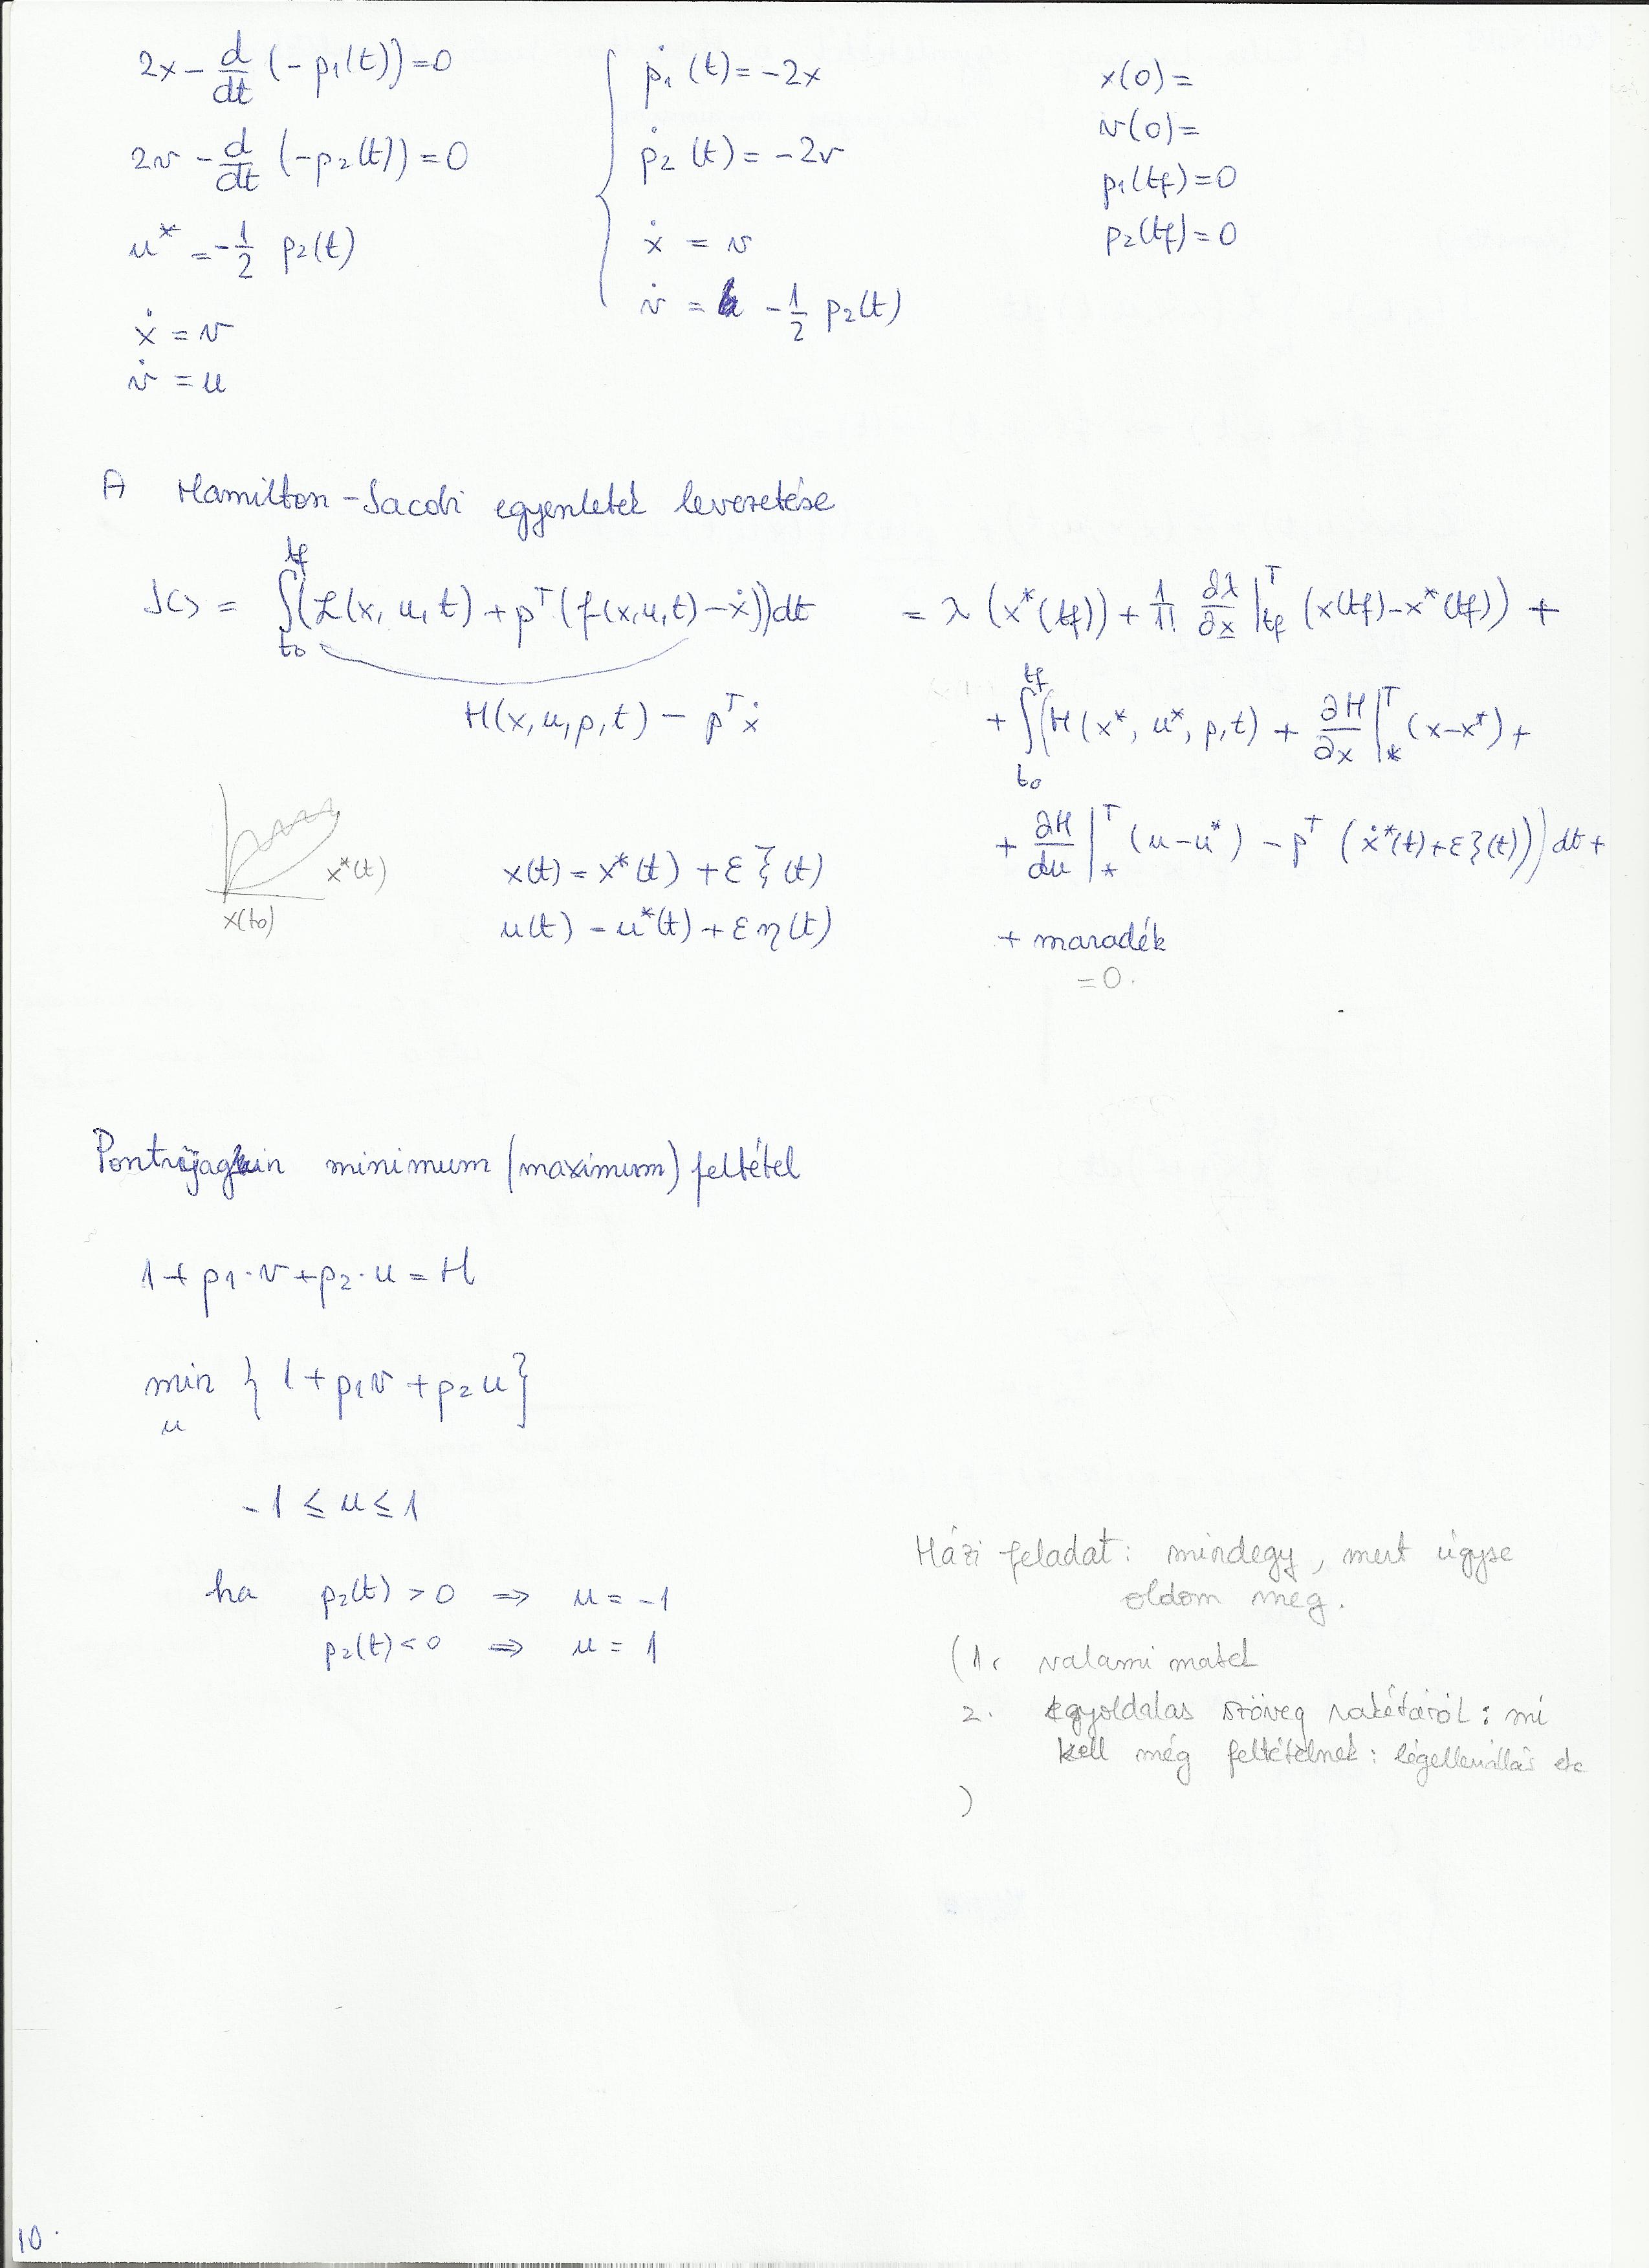 2x - d/dt (-p₁(t)) = 0
2v - d/dt (-p₂(t)) = 0
u* = -1/2 p₂(t)
ẋ = v
v̇ = u
ṗ₁(t) = -2x
ṗ₂(t) = -2v
ẋ = v
v̇ = -1/2 p₂(t)
x(0) =
v(0) =
p₁(tf) = 0
p₂(tf) = 0
A Hamilton-Jacobi egyenletek levezetése
J<> = ∫_{t₀}^{tf} (ℒ(x, u, t) + pᵀ(f(x,u,t) - ẋ))dt
H(x, u, p, t) - pᵀẋ
= λ(x*(tf)) + 1/1! ∂λ/∂x |ᵀ_{tf} (x(tf) - x*(tf)) +
+ ∫_{t₀}^{tf} (H(x*, u*, p, t) + ∂H/∂x |ᵀ_* (x-x*) +
+ ∂H/du |ᵀ_* (u-u*) - pᵀ (ẋ*(t) + εξ(t))) dt +
+ maradék
= 0.
x*(t)
x(t₀)
x(t) = x*(t) + εξ(t)
u(t) = u*(t) + εη(t)
Pontrjagin minimum (maximum) feltétel
1 + p₁·v + p₂·u = H
min { 1 + p₁v + p₂u }
u
-1 ≤ u ≤ 1
ha p₂(t) > 0 ⇒ u = -1
p₂(t) < 0 ⇒ u = 1
Házi feladat: mindegy, mert úgyse
oldom meg.
(1. valami
2. egyoldalas szöveg rakétáról: mi
kell még feltételnek: légellenállás etc
)
10.